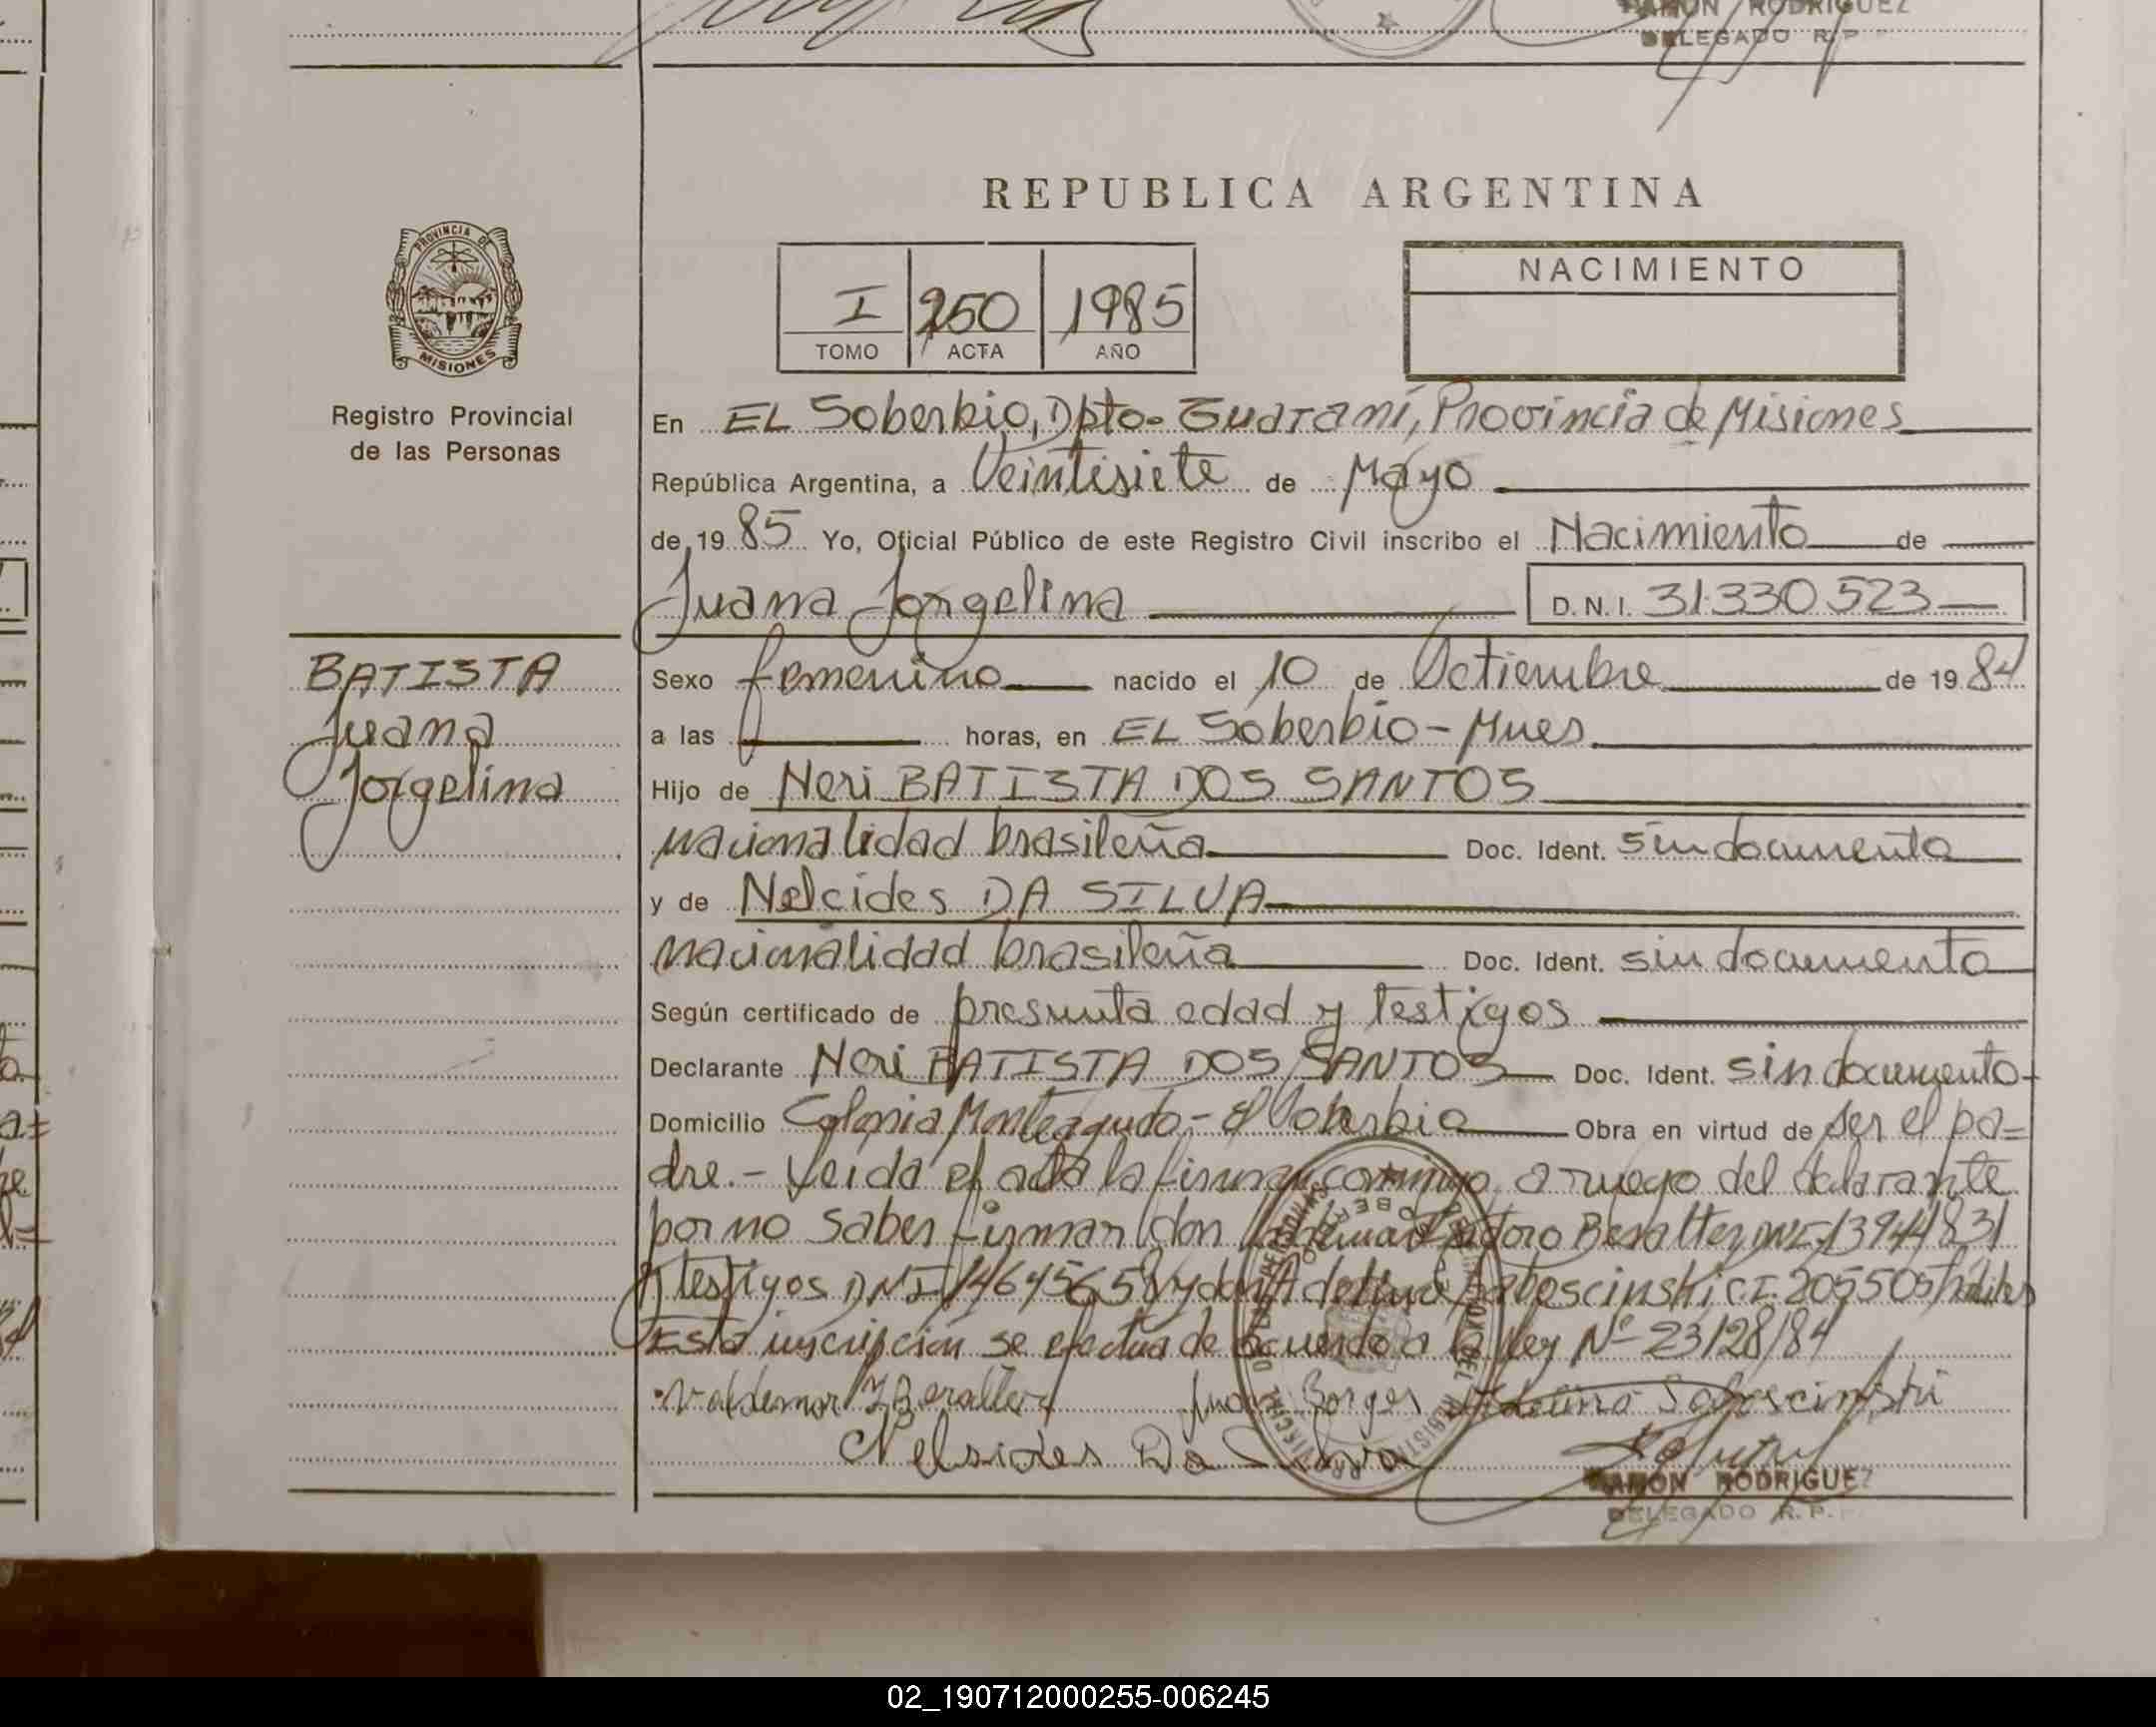 RAMON RODRIGUEZ
DELEGADO R.P.
REPUBLICA ARGENTINA
PROVINCIA DE
MISIONES
Registro Provincial
de las Personas
I 250 1985
TOMO ACTA AÑO
NACIMIENTO
En EL Soberbio, Dpto. Guaraní, Provincia de Misiones
República Argentina, a Veintisiete de Mayo
de 19 85 Yo, Oficial Público de este Registro Civil inscribo el Nacimiento de
Juana Jorgelina D.N.I. 31.330.523
BATISTA
Juana
Jorgelina
Sexo femenino nacido el 10 de Octiembre de 19 84
a las horas, en EL Soberbio - Mnes
Hijo de Neri BATISTA DOS SANTOS
nacionalidad brasileña Doc. Ident. sin documento
y de Nelcides DA SILVA
nacionalidad brasileña Doc. Ident. sin documento
Según certificado de presunta edad y testigos
Declarante Neri BATISTA DOS SANTOS Doc. Ident. sin documento
Domicilio Colonia Monteagudo - El Soberbio Obra en virtud de ser el pa=
dre. - Leida el acta la firman conmigo a ruego del declarante
por no saber firmar don Isidoro Beralter DNI 13944831
testigos DNI 14645658 y don Adelino Saboscinski C.I. 205505 hábiles
Esta inscripción se efectua de acuerdo a la ley Nº 23128/84
Valdemar I Beralter Juan Borges Adelino Saboscinski
Nelsides Da Silva
RAMON RODRIGUEZ
DELEGADO R.P.
02_190712000255-006245